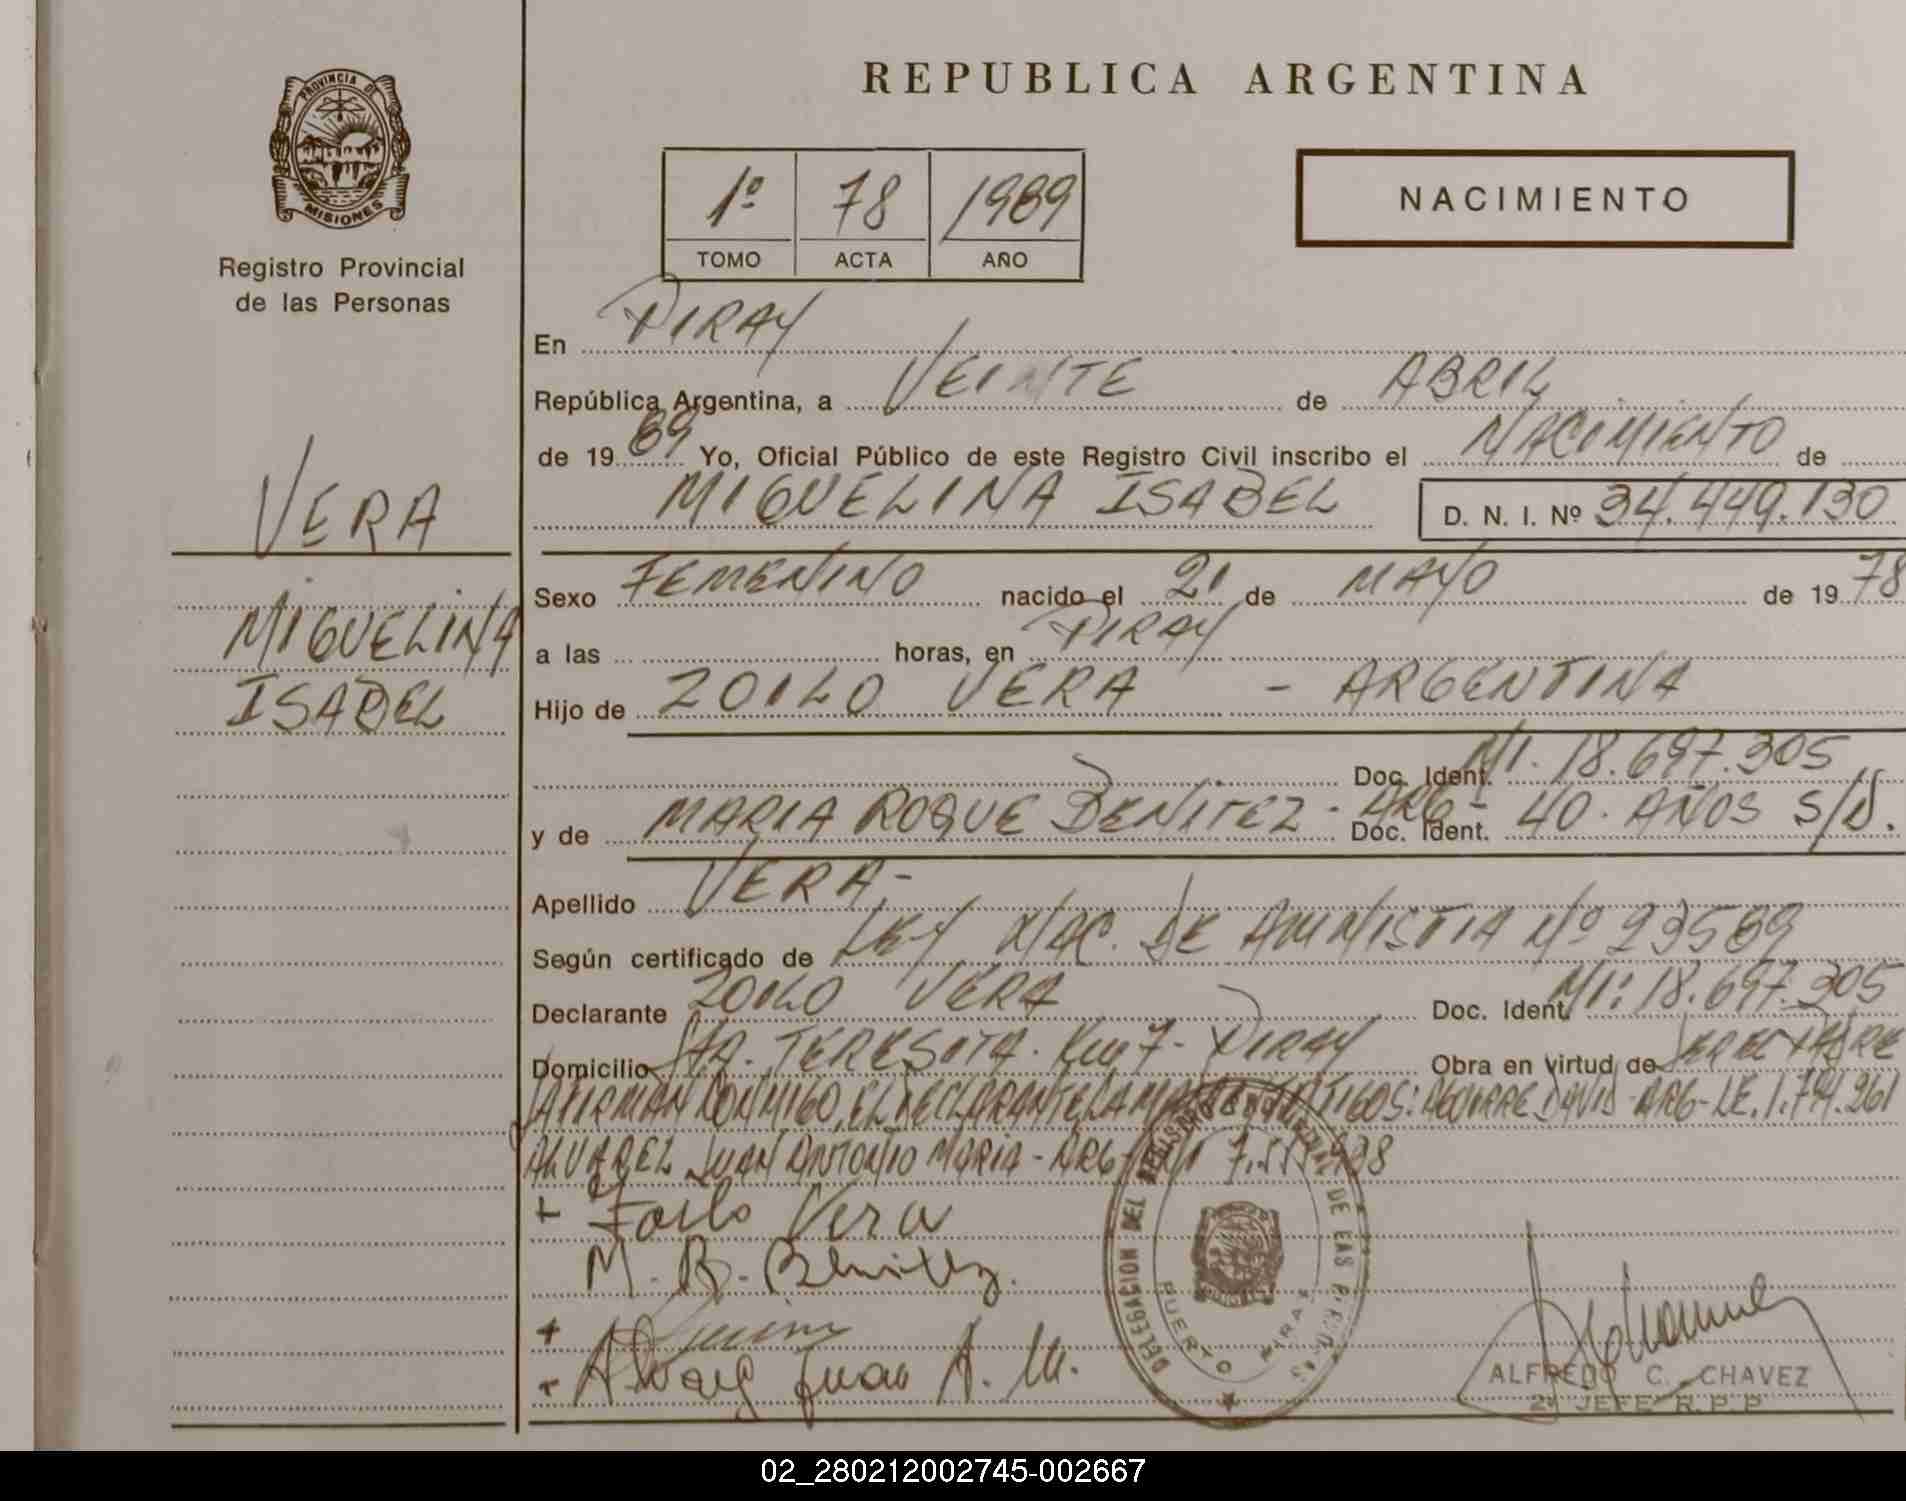 PROVINCIA D
MISIONES
Registro Provincial
de las Personas
VERA
MIGUELINA
ISABEL
REPUBLICA ARGENTINA
1º 78 1989
TOMO ACTA AÑO
NACIMIENTO
En PIRAY
República Argentina, a VEINTE de ABRIL
de 19 89 Yo, Oficial Público de este Registro Civil inscribo el NACIMIENTO de
MIGUELINA ISABEL D. N. I. Nº 34.449.130
Sexo FEMENINO nacido el 21 de MAYO de 19 78
a las horas, en PIRAY
Hijo de ZOILO VERA - ARGENTINA
Doc. Ident. MI. 18.697.305
y de MARIA ROQUE BENITEZ - ARG - Doc. Ident. 40. AÑOS S/D.
Apellido VERA -
Según certificado de LEY NAC. DE AMNISTIA Nº 23569
Declarante ZOILO VERA Doc. Ident. MI: 18.697.305
Domicilio STA. TERESITA. Km 7 - PIRAY Obra en virtud de SER EL PADRE
FIRMAN CONMIGO, EL DECLARANTE LA TESTIGOS: AGUIRRE DAVID - ARG - LE. 1.794.261
ALVAREZ JUAN ANTONIO MARIA - ARG
+ Zoilo Vera
M. R. Benitez.
+
+ Alvarez Juan A. M.
DELEGACION DEL REGISTRO DE LAS PERSONAS
PUERTO PIRAY
ALFREDO C. CHAVEZ
2º JEFE R.P.P
02_280212002745-002667